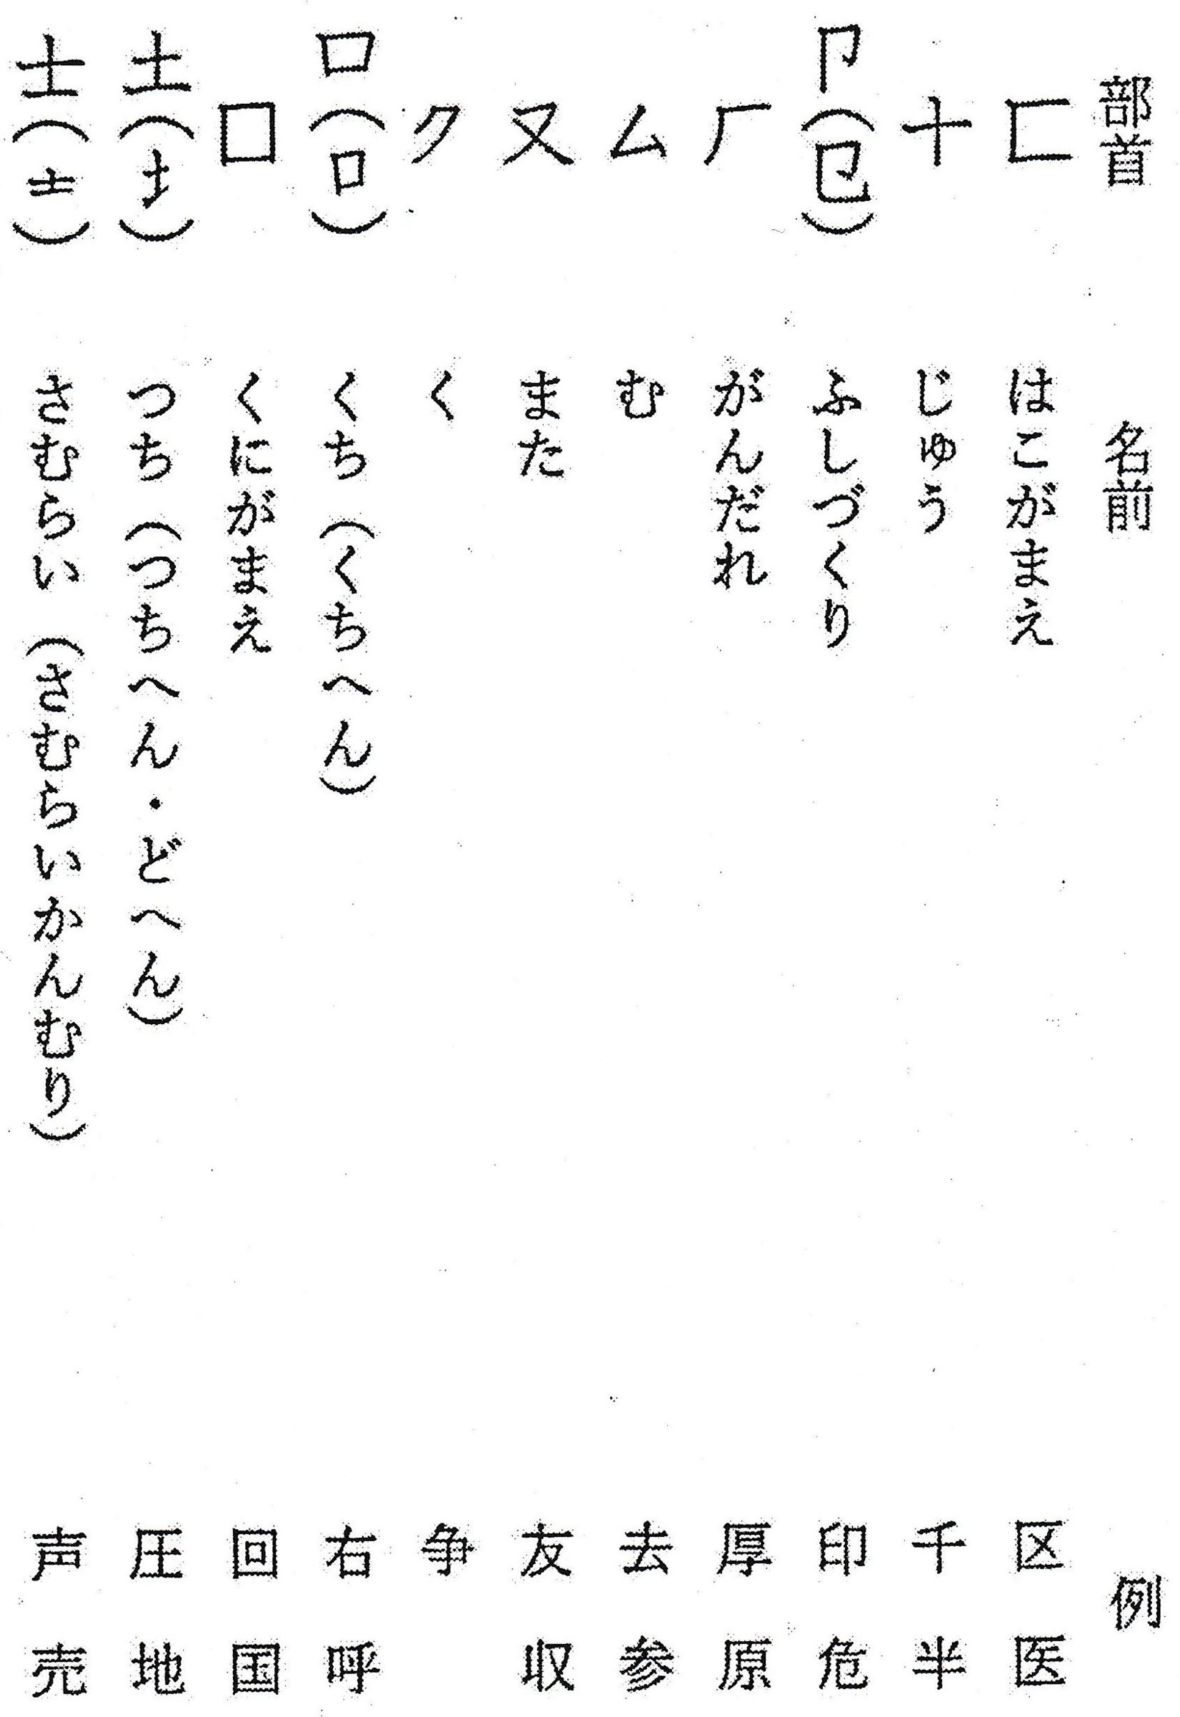 部首 名前 例
匚 はこがまえ 区 医
十 じゅう 千 半
卩(㔾) ふしづくり 印 危
厂 がんだれ 厚 原
厶 む 去 参
又 また 友 収
ク く 争
口(口) くち(くちへん) 右 呼
囗 くにがまえ 回 国
土(土) つち(つちへん・どへん) 圧 地
士(士) さむらい(さむらいかんむり) 声 売